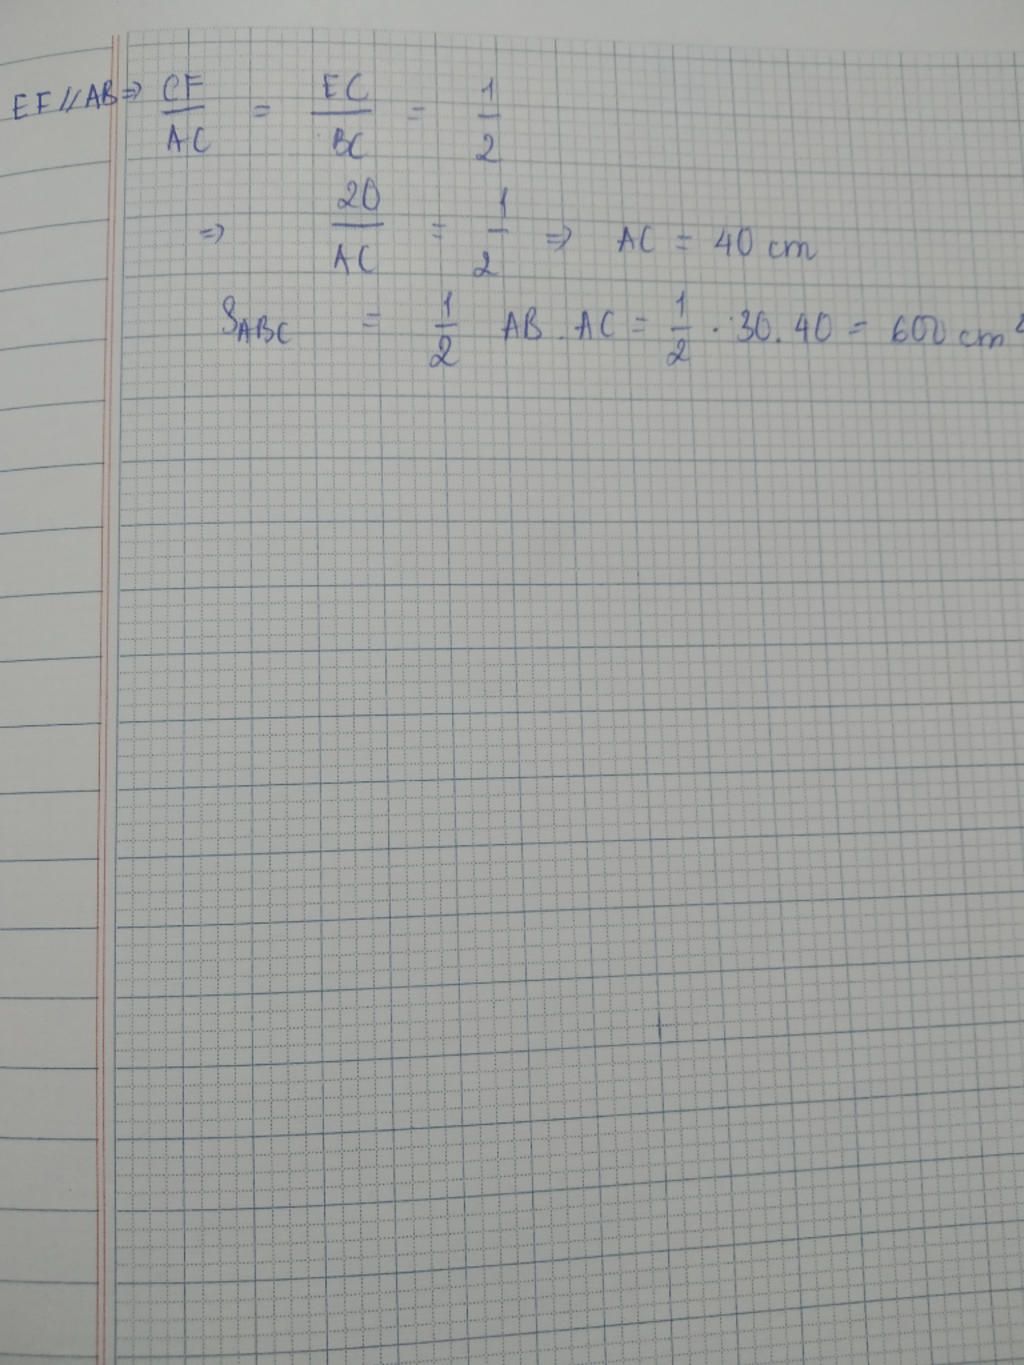 EF // AB ⇒ CF/AC = EC/BC = 1/2
⇒ 20/AC = 1/2 ⇒ AC = 40 cm
S_ABC = 1/2 AB . AC = 1/2 . 30 . 40 = 600 cm²